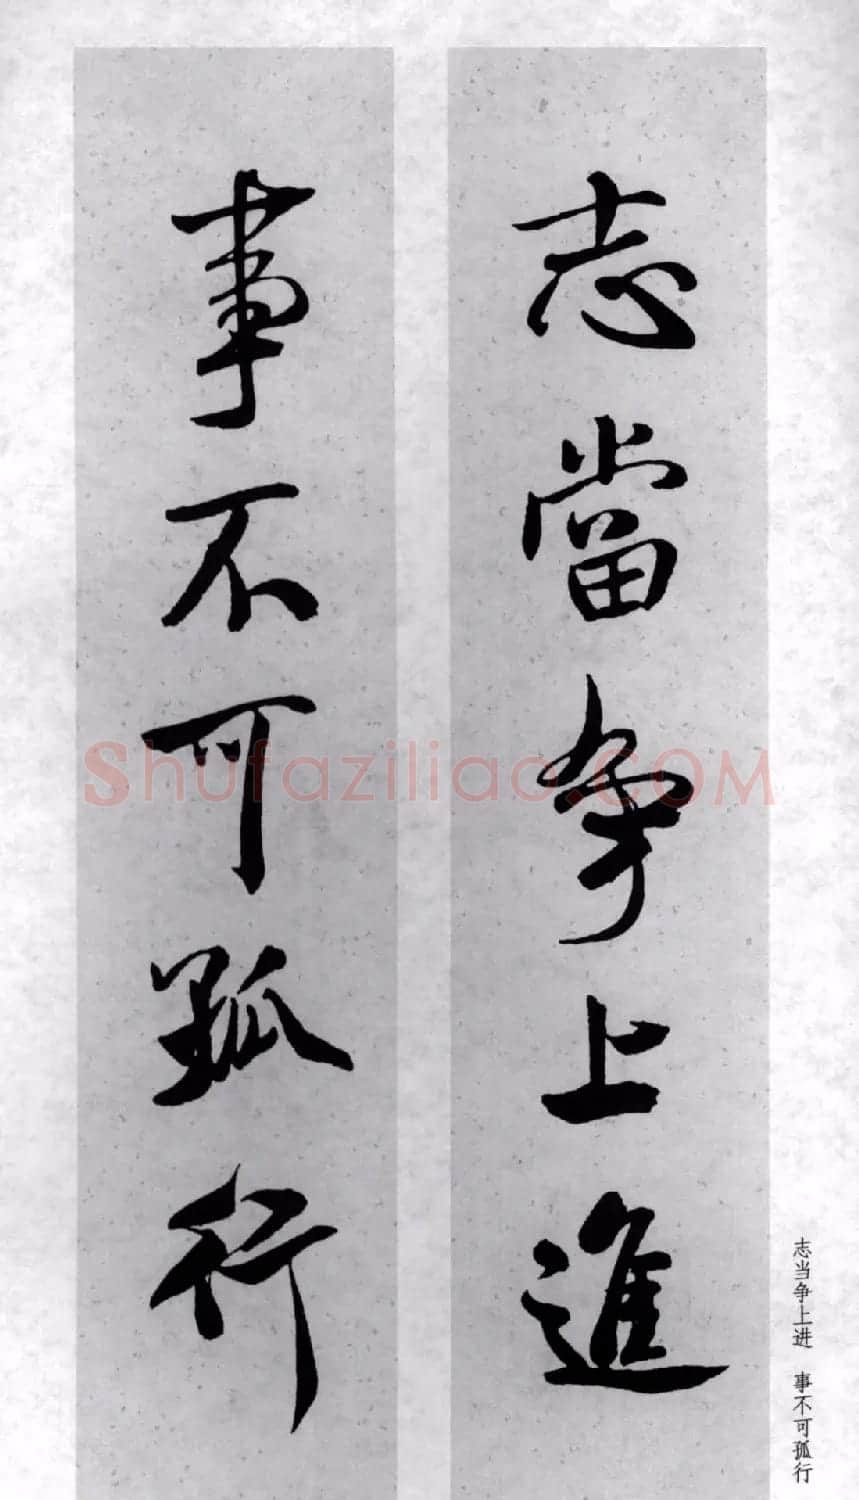 志當争上進
事不可孤行
志当争上进 事不可孤行
Shufaziliao.COM